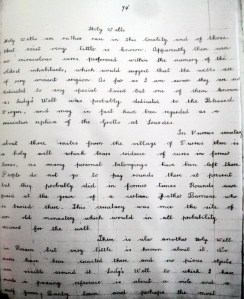 74
Holy Wells
Holy Wells are rather rare in this locality and of those
that exist very little is known. Apparently there were
no miraculous cures performed within the memory of the
oldest inhabitants, which would suggest that the wells are
of very ancient origin. As far as I am aware they are
dedicated to any special Saint but one of them known
as Lady's Well was probably dedicated to the Blessed
Virgin, and may in fact have been regarded as a
miniature replica of the Grotto at Lourdes.
In situated
about three miles from the village of there is
a holy well which bears evidence of cures in former
times, as many personal belongings have been left there.
People do not go to pay rounds there at present
but they probably did in former times. Rounds were
paid at the grave of a certain Father who
is buried there. This cemetery was the site of
an old monastery which would in all probability
account for the well.
There is also another Holy Well
but very little is known about it.
have been located there and no pious objects
visible around it. Lady's Well to which I have
a passing reference is about a mile and
from and perhaps the most